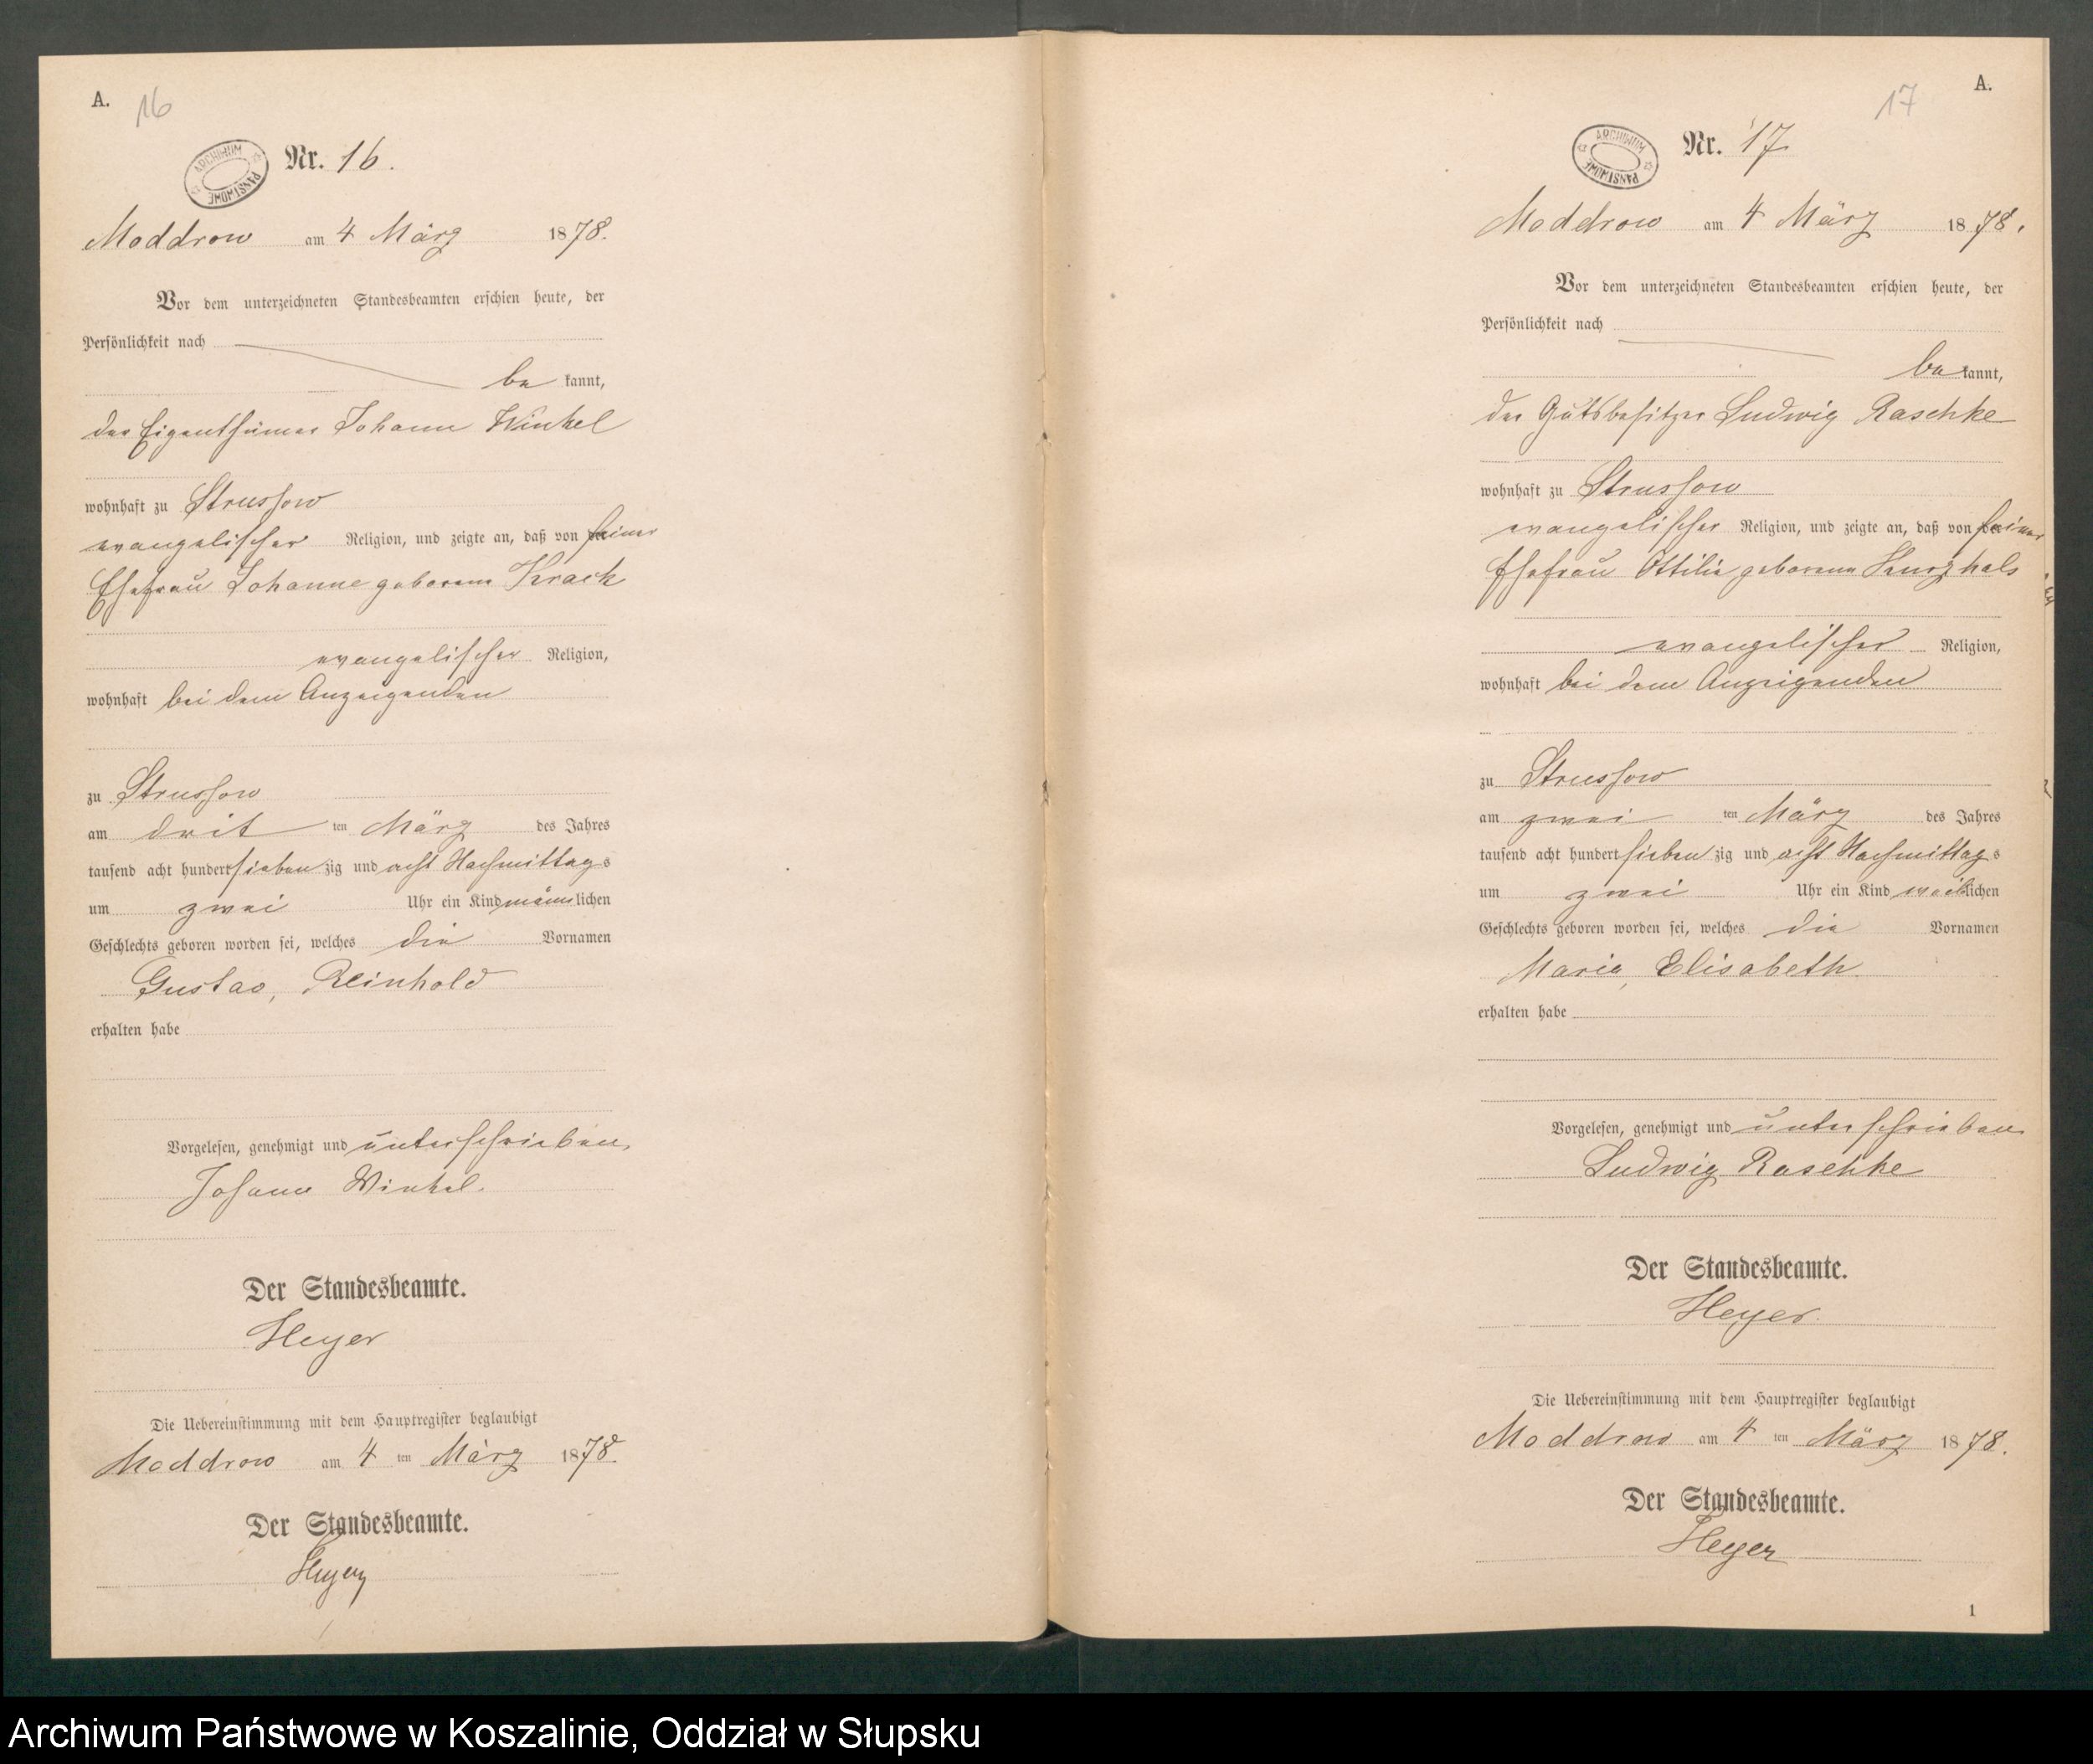 A.
16
ARCHIWUM PAŃSTWOWE
Nr. 16.
Moddrow am 4 März 1878.
Vor dem unterzeichneten Standesbeamten erschien heute, der
Persönlichkeit nach
be kannt,
der Eigenthümer Johann Winkel
wohnhaft zu Strussow
evangelischer Religion, und zeigte an, daß von seiner
Ehefrau Johanne geborene Krack
evangelischer Religion,
wohnhaft bei dem Anzeigenden
zu Strussow
am drit ten März des Jahres
tausend acht hundert sieben zig und acht Nachmittag s
um zwei Uhr ein Kind männlichen
Geschlechts geboren worden sei, welches die Vornamen
Gustav, Reinhold
erhalten habe
Vorgelesen, genehmigt und unterschrieben.
Johann Winkel.
Der Standesbeamte.
Heyer
Die Uebereinstimmung mit dem Hauptregister beglaubigt
Moddrow am 4 ten März 1878.
Der Standesbeamte.
Heyer
A.
17
ARCHIWUM PAŃSTWOWE
Nr. 17
Moddrow am 4 März 1878.
Vor dem unterzeichneten Standesbeamten erschien heute, der
Persönlichkeit nach
be kannt,
der Gutsbesitzer Ludwig Raschke
wohnhaft zu Strussow
evangelischer Religion, und zeigte an, daß von seiner
Ehefrau Ottilie geborene Kurzhals
evangelischer Religion,
wohnhaft bei dem Anzeigenden
zu Strussow
am zwei ten März des Jahres
tausend acht hundert sieben zig und acht Nachmittag s
um zwei Uhr ein Kind weiblichen
Geschlechts geboren worden sei, welches die Vornamen
Marie, Elisabeth
erhalten habe
Vorgelesen, genehmigt und unterschrieben
Ludwig Raschke
Der Standesbeamte.
Heyer.
Die Uebereinstimmung mit dem Hauptregister beglaubigt
Moddrow am 4 ten März 1878.
Der Standesbeamte.
Heyer
1
Archiwum Państwowe w Koszalinie, Oddział w Słupsku